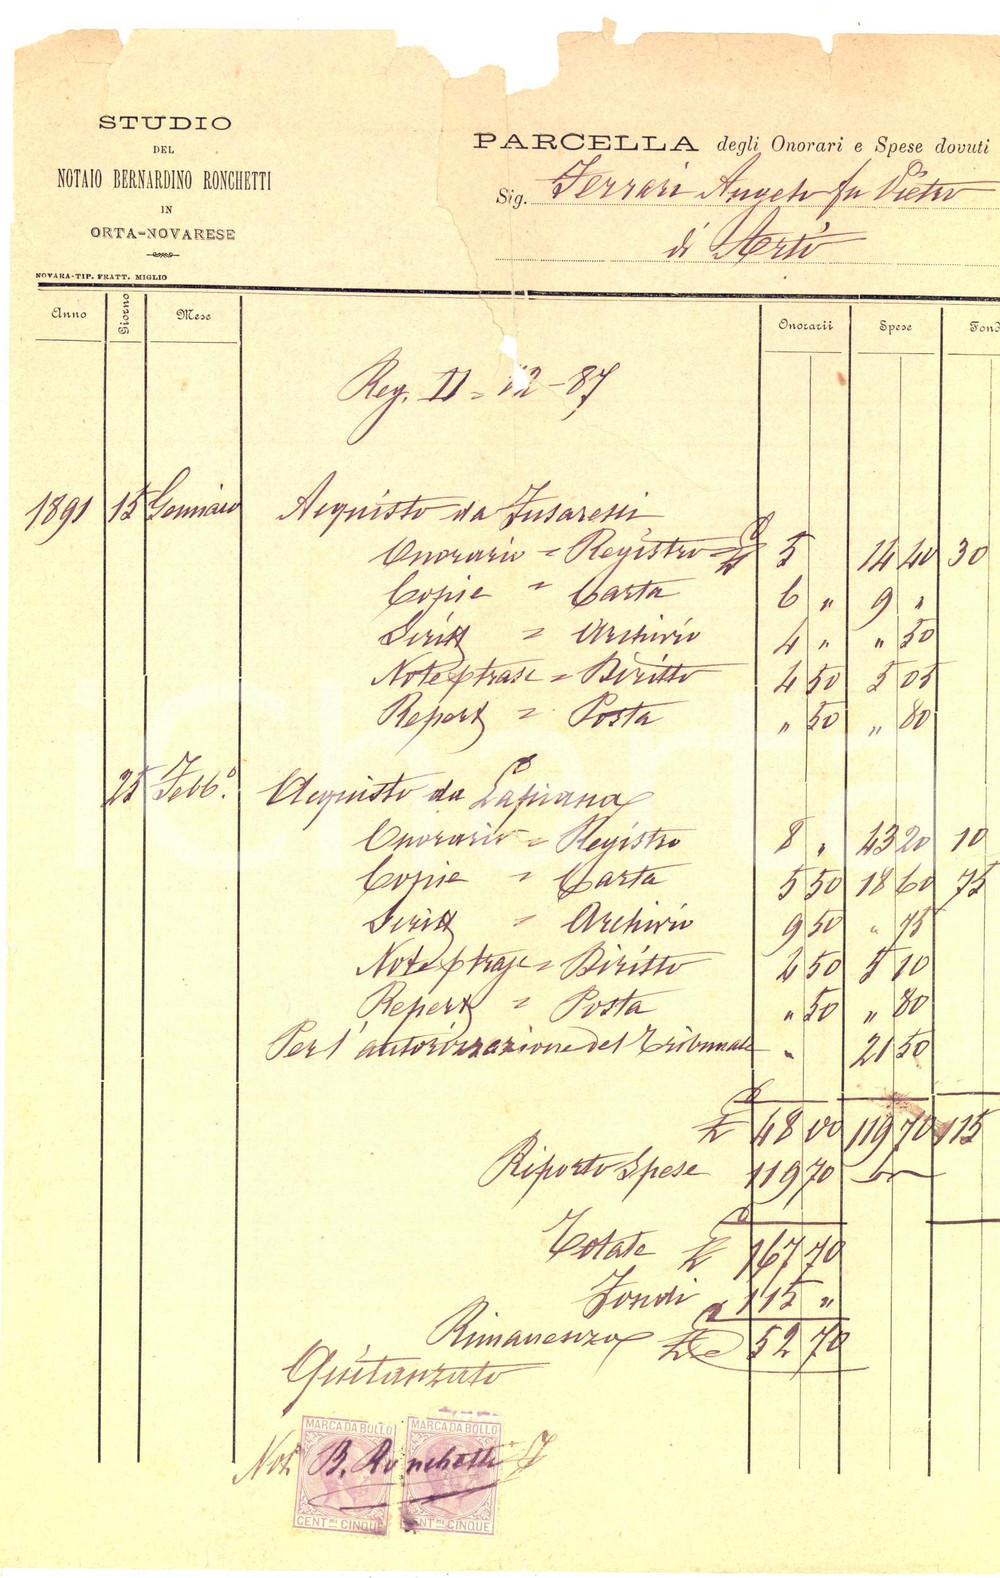 STUDIO
DEL
NOTAIO BERNARDINO RONCHETTI
IN
ORTA-NOVARESE
NOVARA-TIP. FRATT. MIGLIO
PARCELLA degli Onorari e Spese dovuti
Sig. Ferrari Angelo fu Pietro
di Artò
Anno Giorno Mese Onorarii Spese Fond
Reg. II = 12 - 87
1891 15 Gennaio Acquisto da
Onorario = Registro = £ 5 14 40 30
Copie = Carta 6 " 9 "
Scritt = Archivio 4 " " 50
Note ptrasc = Diritto 4 50 5 05
Repert = Posta " 50 " 80
25 Febb.° Acquisto da Lapiana
Onorario = Registro 8 " 43 20 10
Copie = Carta 5 50 18 60 75
Scritt = Archivio 9 50 " 75
Note ptrasc = Diritto 2 50 5 10
Repert = Posta " 50 " 80
Per l'autorizzazione del Tribunale " 21 50
£ 48 00 119 70 115
Riporto Spese 119 70
Totale £ 167 70
Fondi 115 "
Rimanenza £ 52 70
Quitanzato
MARCA DA BOLLO MARCA DA BOLLO
Not B. Ronchetti
CENT.MI CINQUE CENT.MI CINQUE